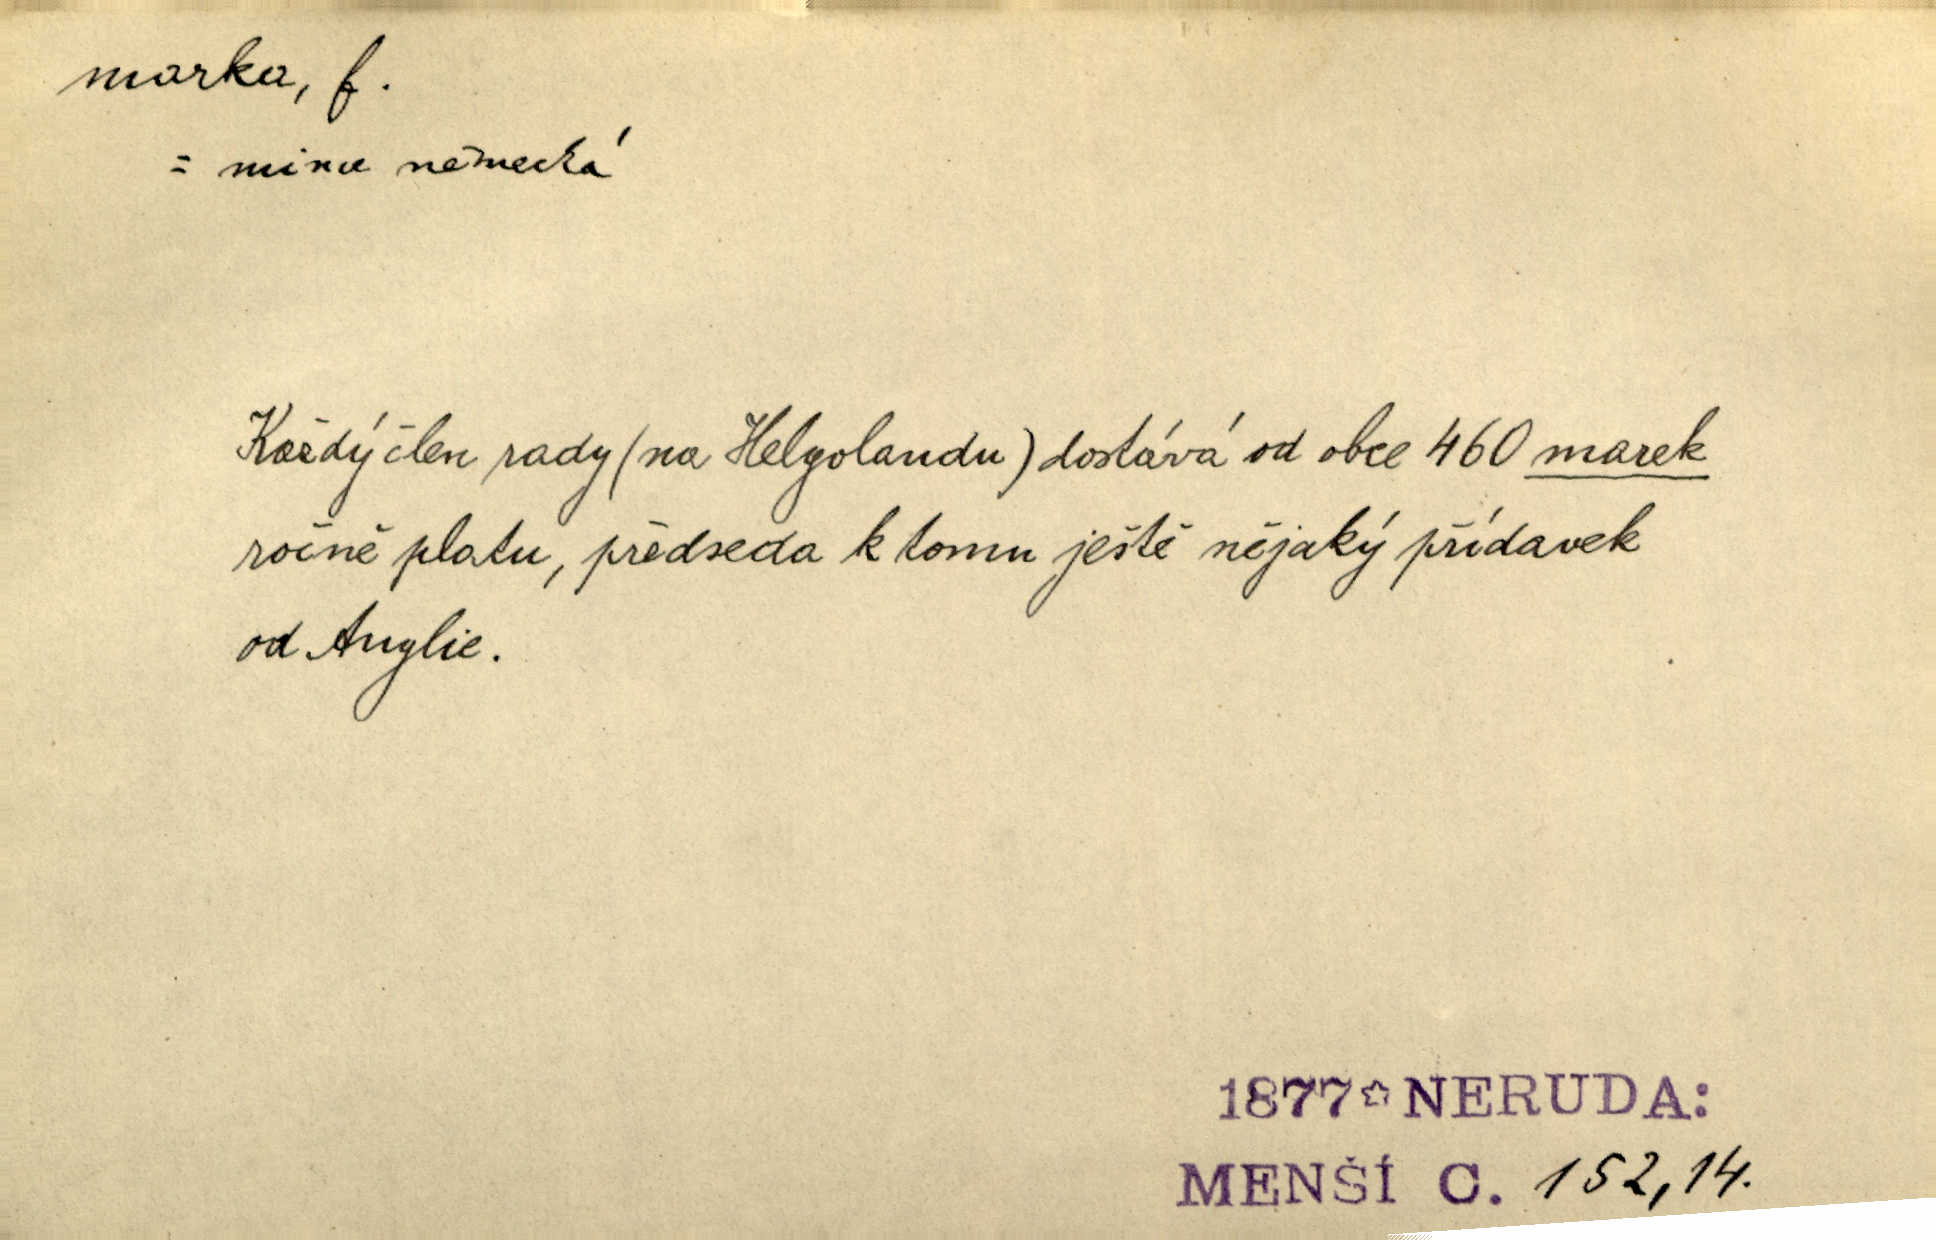 marka, f.
= mince německá
Každý člen rady (na Helgolandu) dostává od obce 460 marek
ročně platu, předseda k tomu ještě nějaký přídavek
od Anglie.
1877☆NERUDA:
MENŠÍ C. 152,14.